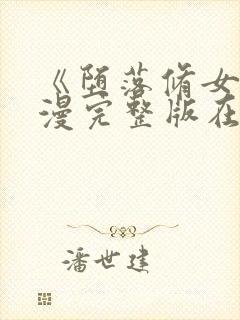 《堕落脩女
漫完整版在
潘世建